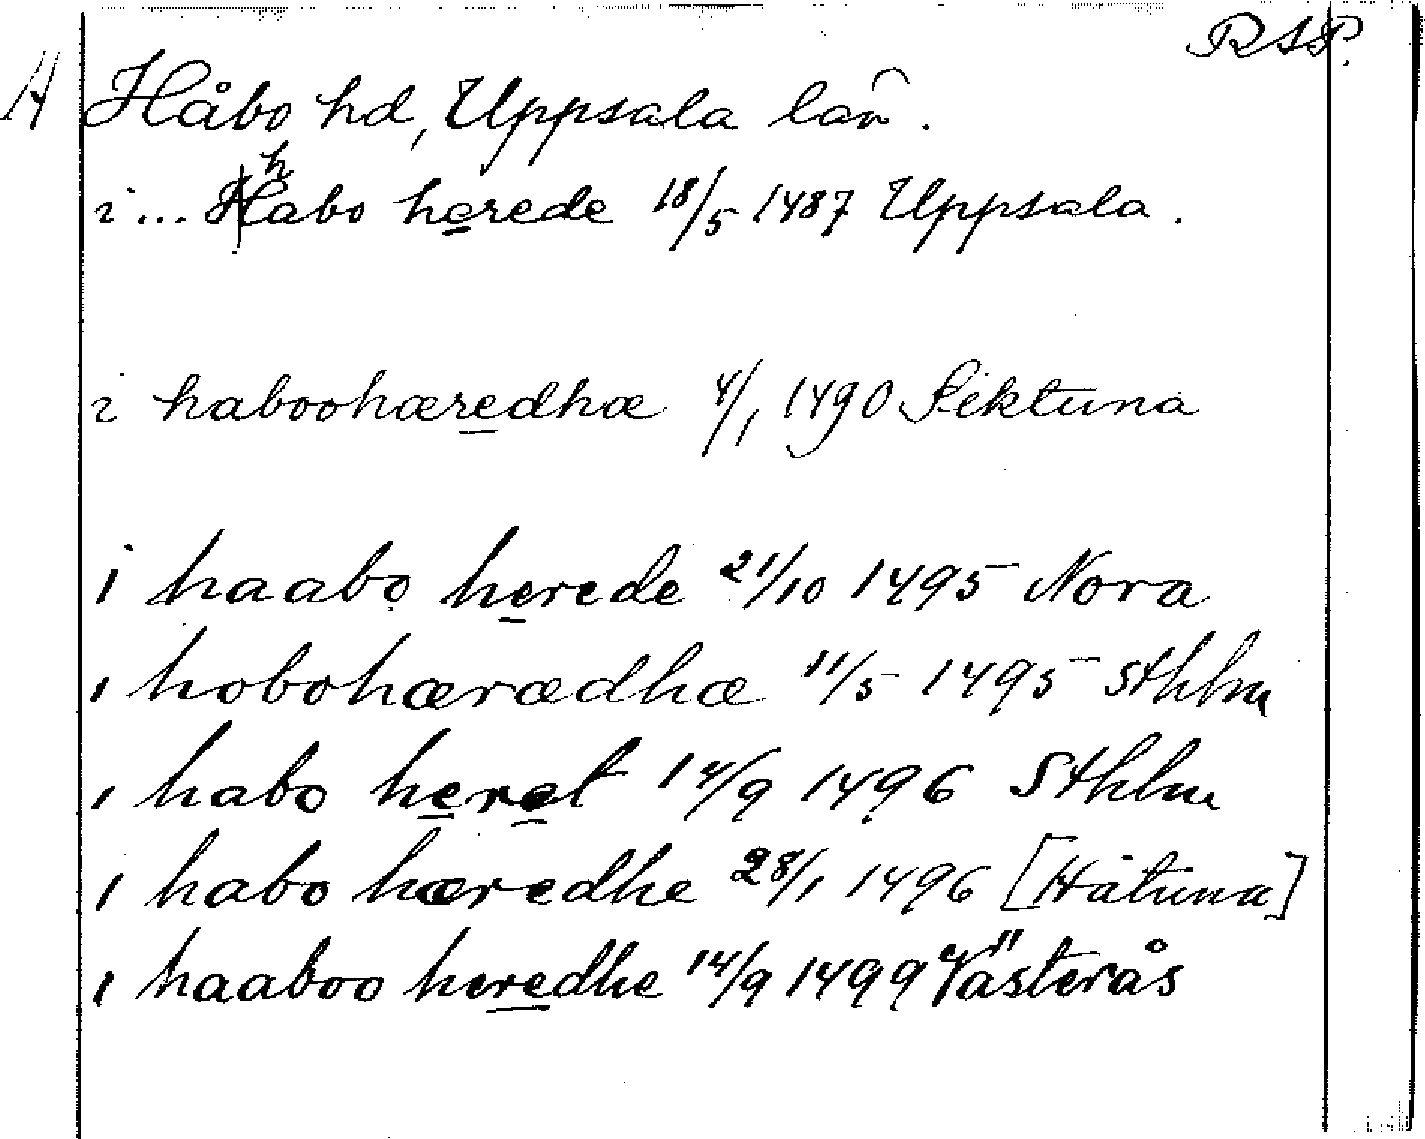 RAP.
H Håbo hd, Uppsala län.
i ... habo herede 18/5 1487 Uppsala.
i haboohæredhæ 4/1 1490 Siktuna
i haabo herede 21/10 1495 Nora
i hobohærædhæ 11/5 1495 Sthlm
i habo heret 14/9 1496 Sthlm
i habo hæredhe 28/1 1496 [Håtuna]
i haaboo heredhe 14/9 1499 Västerås